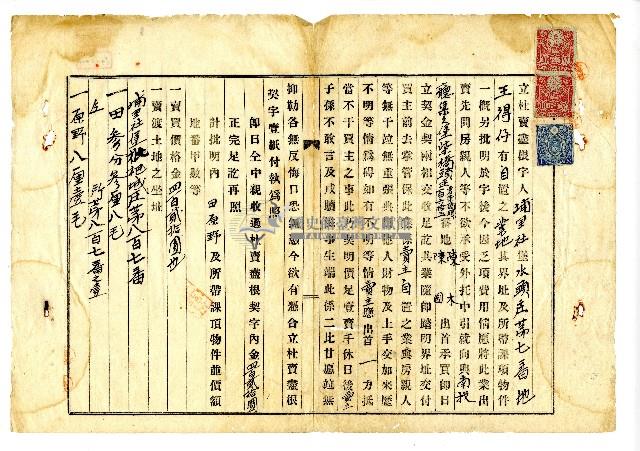 立杜賣盡根字人埔里社堡水頭庄第七番地
王得仔有自置之業地其界址及所帶課項物件
一概另批明於字後今因乏項費用情愿將此業出
賣先問房親人等不欲承受外托中引就向與南投
堡集集堡柴橋頭庄百 番地陳 木 出首承買即日
立契金契兩相交收足訖其業隨即踏明界址交付
買主前去掌管保此業係賣主自置之業與房親人
等無干亦無重張典掛他人財物及上手交加來歷
不明等情為碍如有不明等情賣主應出首一力抵
當不干買主之事此係契明價足壹賣千休日後賣主
子孫不敢言及戌贖滋事生端此係二比甘愿各無
抑勒各無反悔口恐無憑今欲有憑合立杜賣盡根
契字壹紙付執為照
即日仝中親收過杜賣盡根契字內金四百貳拾圓
正完足訖再照
計批明內 田原野 及所帶課頂物件並價額
地番甲數等
一賣買價格金四百貳拾圓也
一賣渡土地之坐址
埔里社堡枇杷城庄第八百七番
一田參分參厘八毛
仝 所第八百七番之壹
一原野八厘壹毛